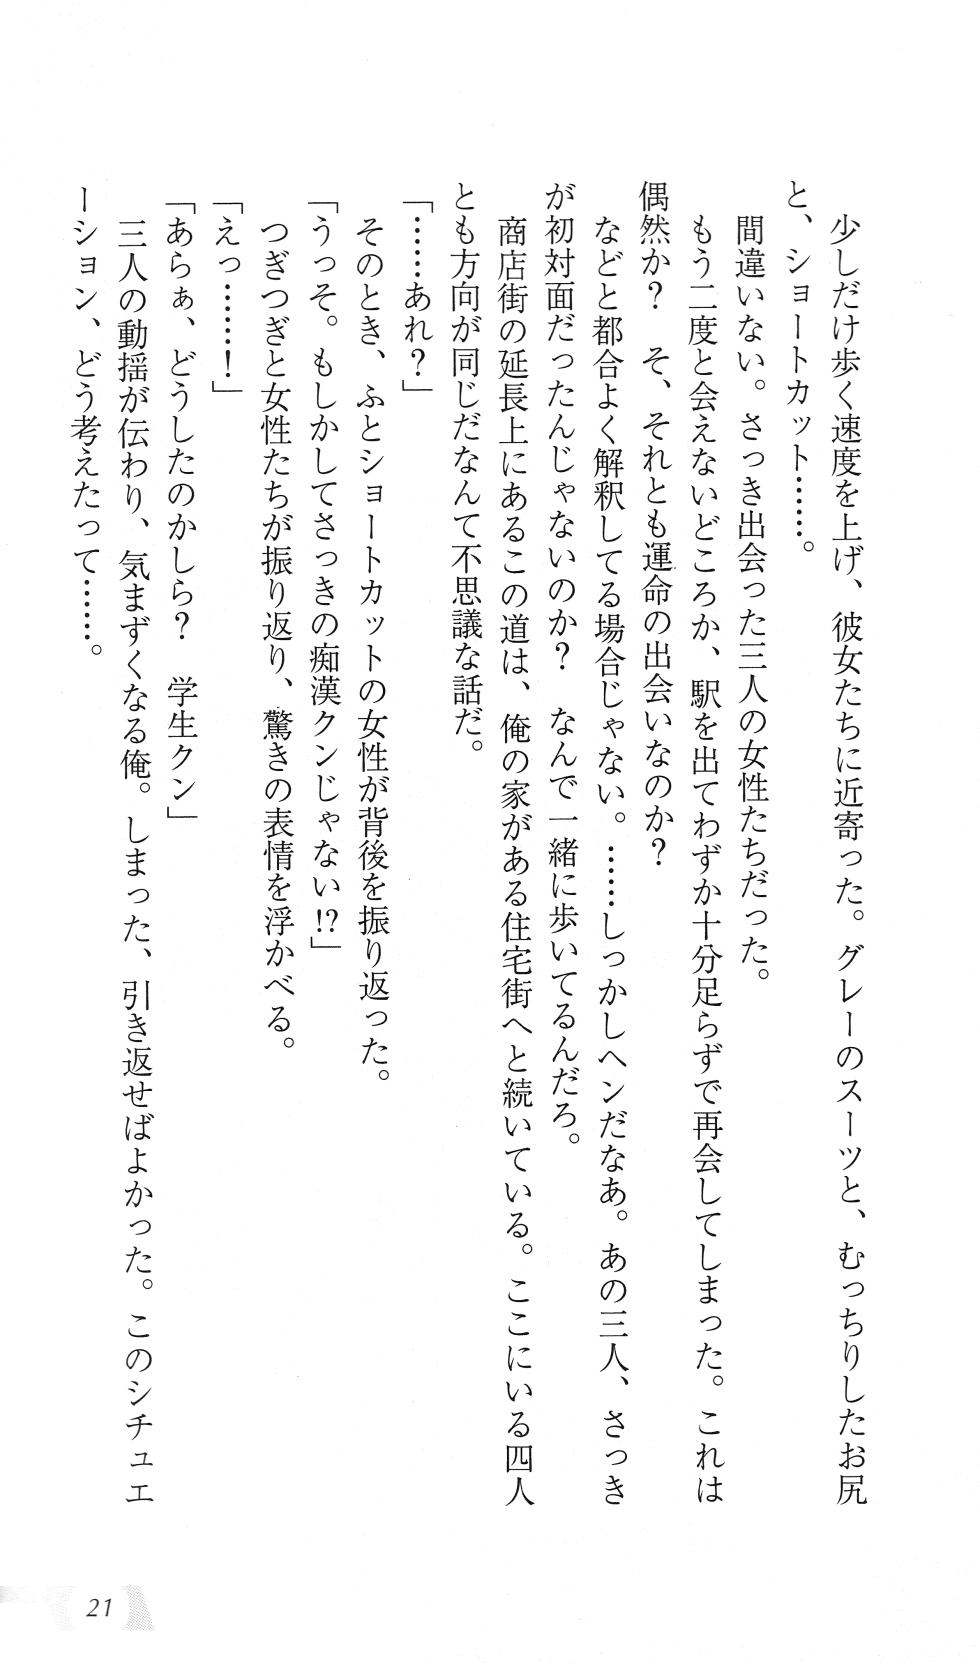 少しだけ歩く速度を上げ、彼女たちに近寄った。グレーのスーツと、むっちりしたお尻
と、ショートカット……。
　間違いない。さっき出会った三人の女性たちだった。
　もう二度と会えないどころか、駅を出てわずか十分足らずで再会してしまった。これは
偶然か？　そ、それとも運命の出会いなのか？
　などと都合よく解釈してる場合じゃない。……しっかしヘンだなあ。あの三人、さっき
が初対面だったんじゃないのか？　なんで一緒に歩いてるんだろ。
　商店街の延長上にあるこの道は、俺の家がある住宅街へと続いている。ここにいる四人
とも方向が同じだなんて不思議な話だ。
「……あれ？」
　そのとき、ふとショートカットの女性が背後を振り返った。
「うっそ。もしかしてさっきの痴漢クンじゃない!?」
　つぎつぎと女性たちが振り返り、驚きの表情を浮かべる。
「えっ………！」
「あらぁ、どうしたのかしら？　学生クン」
　三人の動揺が伝わり、気まずくなる俺。しまった、引き返せばよかった。このシチュエ
ーション、どう考えたって……。
21